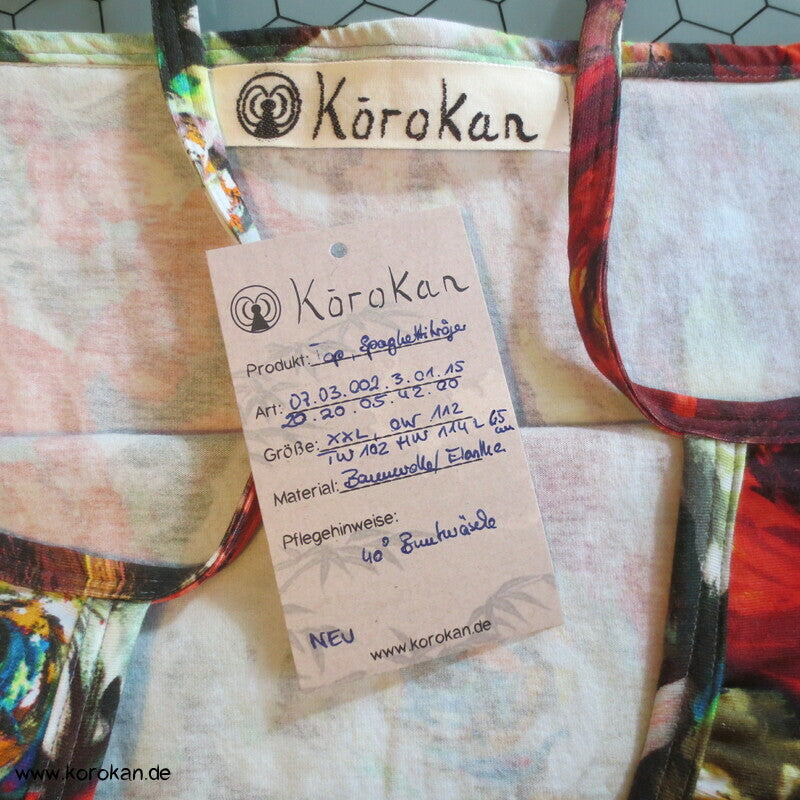 Kōrokan
Kōrokan
Produkt: Top, Spaghettiträger
Art: 07.03.002.3.01.15
20.20.05.42.00
Größe: XXL, OW 112
TW 102 HW 114 L 65 cm
Material: Baumwolle/Elasthan
Pflegehinweise:
40° Buntwäsche
NEU
www.korokan.de
www.korokan.de